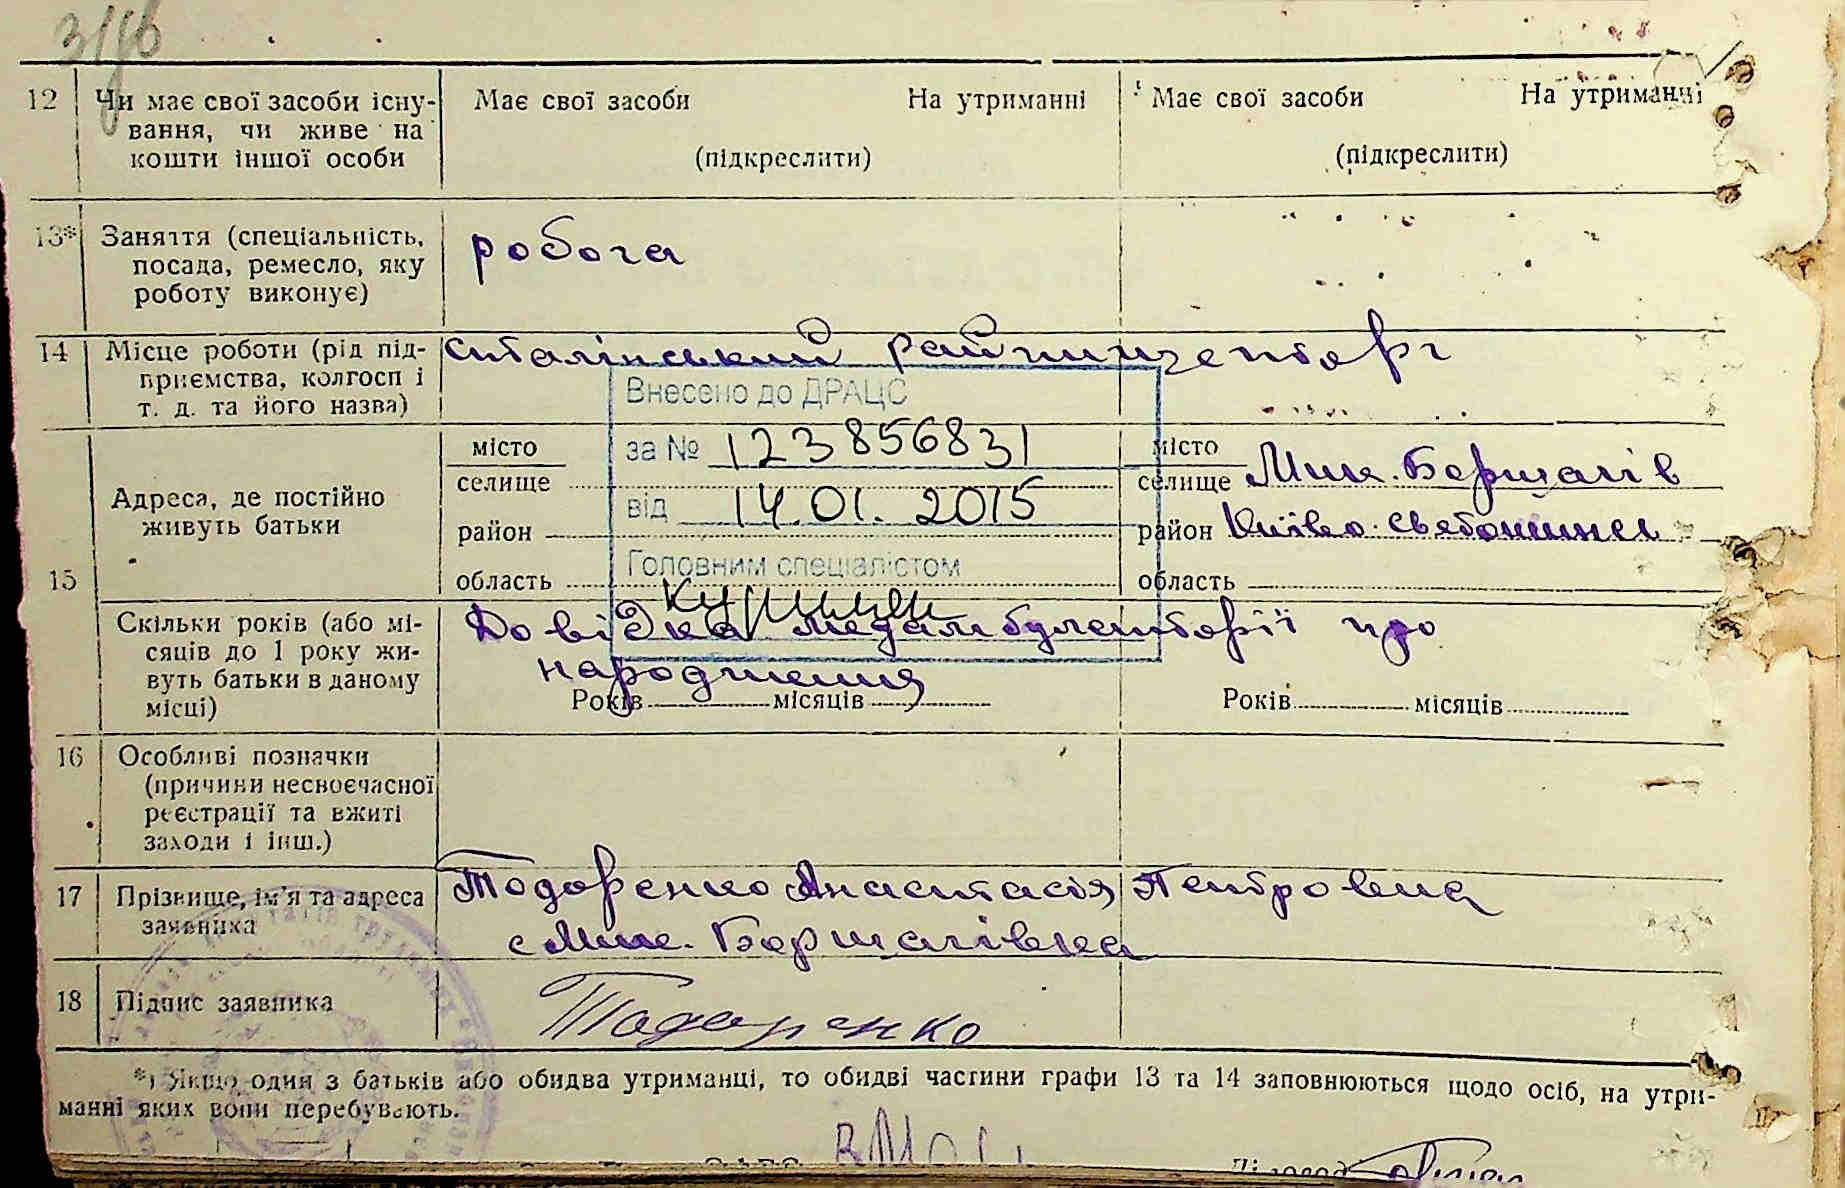 12 Чи має свої засоби існу- Має свої засоби На утриманні Має свої засоби На утриманні
вання, чи живе на
кошти іншої особи (підкреслити) (підкреслити)
13* Заняття (спеціальність, робоча
посада, ремесло, яку
роботу виконує)
14 Місце роботи (рід під- Сталінський райпищеторг
приємства, колгосп і
т. д. та його назва)
Внесено до ДРАЦС
за № 123856831
від 14.01.2015
Головним спеціалістом
15 Адреса, де постійно
живуть батьки
місто
селище
район
область
місто
селище Мик. Борщагів
район Києво-Святошинс
область
Скільки років (або мі- Довідка медамбулаторії про
сяців до 1 року жи- народження
вуть батьки в даному
місці) Років місяців Років місяців
16 Особливі позначки
(причини несвоєчасної
реєстрації та вжиті
заходи і інш.)
17 Прізвище, ім'я та адреса Тодоренко Анастасія Петровна
заявника с Мик. Борщагівка
18 Підпис заявника Тодоренко
*) Якщо один з батьків або обидва утриманці, то обидві частини графи 13 та 14 заповнюються щодо осіб, на утри-
манні яких вони перебувають.